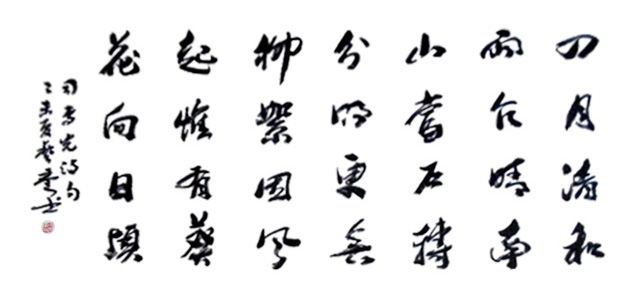 四月清和
雨乍晴南
山當戶轉
分明更無
柳絮因風
起惟有葵
花向日傾
司馬光詩句
乙未夏